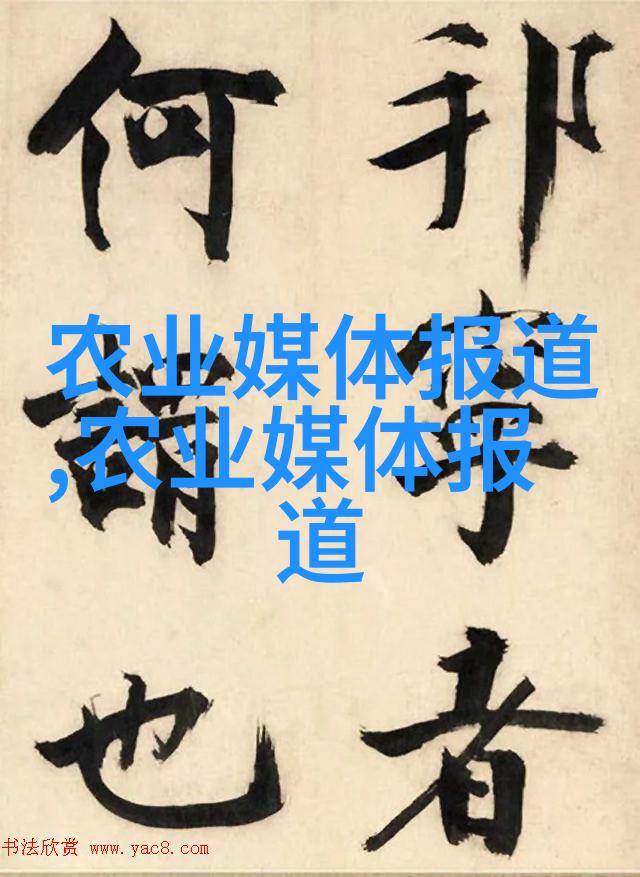 邦寧者
何謂也
农业媒体报道
,农业媒体报
道
书法欣赏 www.yac8.com